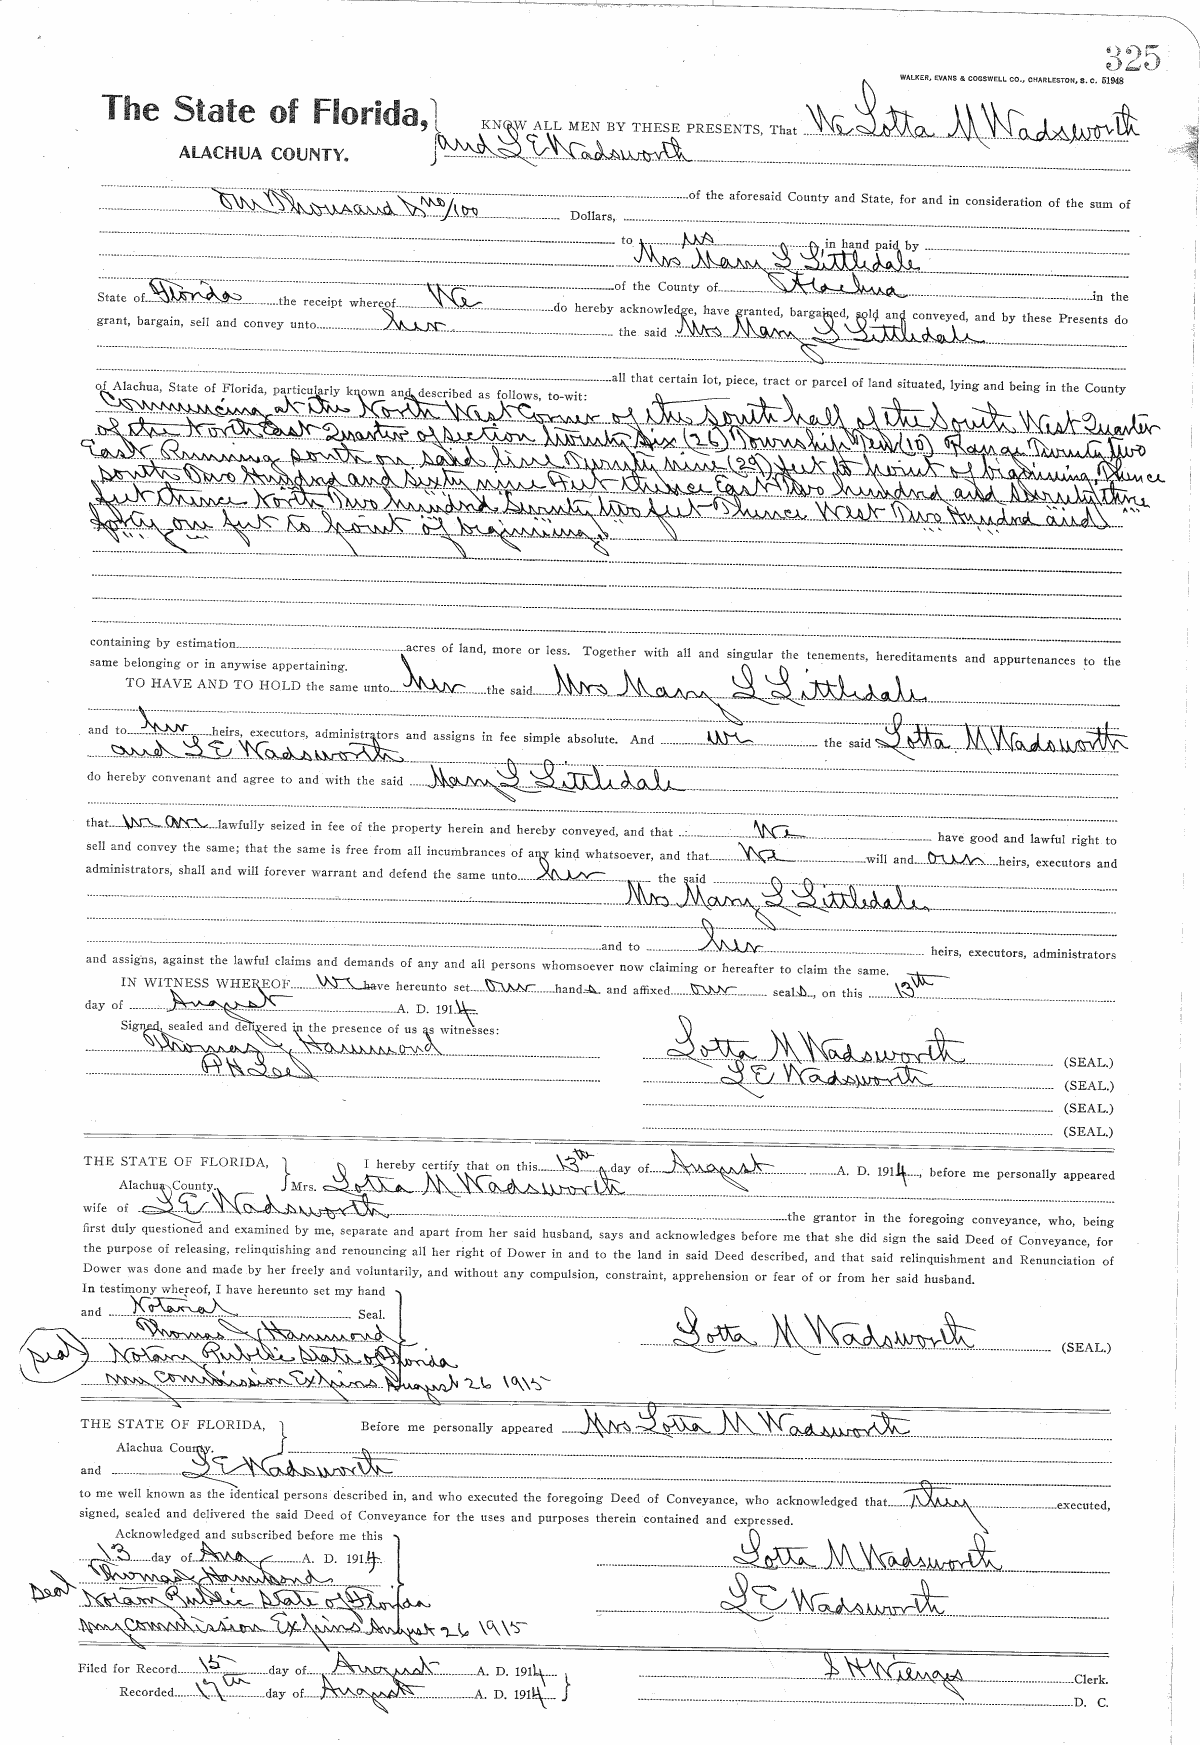 325
WALKER, EVANS & COGSWELL CO., CHARLESTON, S. C. 51948
The State of Florida,
ALACHUA COUNTY.
KNOW ALL MEN BY THESE PRESENTS, That We Lotta M Wadsworth
and L E Wadsworth
of the aforesaid County and State, for and in consideration of the sum of
One Thousand & no/100 Dollars,
to us in hand paid by
Mrs Mary L Littledale
of the County of Alachua in the
State of Florida the receipt whereof We do hereby acknowledge, have granted, bargained, sold and conveyed, and by these Presents do
grant, bargain, sell and convey unto her the said Mrs Mary L Littledale
all that certain lot, piece, tract or parcel of land situated, lying and being in the County
of Alachua, State of Florida, particularly known and described as follows, to-wit:
Commencing at the North West Corner of the South half of the South West Quarter
of the North East Quarter of Section twenty six (26) Township Ten (10) Range Twenty two
East Running south on said line Twenty nine (29) feet to point of beginning, Thence
south Two Hundred and sixty nine Feet thence East Two hundred and Seventy three
feet thence North Two hundred Seventy two feet Thence West Two Hundred and
forty one feet to point of beginning,
containing by estimation acres of land, more or less. Together with all and singular the tenements, hereditaments and appurtenances to the
same belonging or in anywise appertaining.
TO HAVE AND TO HOLD the same unto her the said Mrs Mary L Littledale
and to her heirs, executors, administrators and assigns in fee simple absolute. And we the said Lotta M Wadsworth
and L E Wadsworth
do hereby convenant and agree to and with the said Mary L Littledale
that we are lawfully seized in fee of the property herein and hereby conveyed, and that We have good and lawful right to
sell and convey the same; that the same is free from all incumbrances of any kind whatsoever, and that We will and our heirs, executors and
administrators, shall and will forever warrant and defend the same unto her the said
Mrs Mary L Littledale
and to her heirs, executors, administrators
and assigns, against the lawful claims and demands of any and all persons whomsoever now claiming or hereafter to claim the same.
IN WITNESS WHEREOF We have hereunto set our hands and affixed our seals, on this 13th
day of August A. D. 1914.
Signed, sealed and delivered in the presence of us as witnesses:
Thomas J Hammond
P H Lee
Lotta M Wadsworth (SEAL.)
L E Wadsworth (SEAL.)
(SEAL.)
(SEAL.)
THE STATE OF FLORIDA,
Alachua County.
I hereby certify that on this 13th day of August A. D. 1914, before me personally appeared
Mrs. Lotta M Wadsworth
wife of L E Wadsworth the grantor in the foregoing conveyance, who, being
first duly questioned and examined by me, separate and apart from her said husband, says and acknowledges before me that she did sign the said Deed of Conveyance, for
the purpose of releasing, relinquishing and renouncing all her right of Dower in and to the land in said Deed described, and that said relinquishment and Renunciation of
Dower was done and made by her freely and voluntarily, and without any compulsion, constraint, apprehension or fear of or from her said husband.
In testimony whereof, I have hereunto set my hand
and Notarial Seal.
Thomas J Hammond
Lotta M Wadsworth (SEAL.)
Seal Notary Public State of Florida
my Commission Expires August 26 1915
THE STATE OF FLORIDA,
Alachua County.
Before me personally appeared Mrs Lotta M Wadsworth
and L E Wadsworth
to me well known as the identical persons described in, and who executed the foregoing Deed of Conveyance, who acknowledged that they executed,
signed, sealed and delivered the said Deed of Conveyance for the uses and purposes therein contained and expressed.
Acknowledged and subscribed before me this
13 day of Aug A. D. 1914.
Thomas J Hammond
Lotta M Wadsworth
Seal Notary Public State of Florida
L E Wadsworth
my Commission Expires August 26 1915
Filed for Record 15 day of August A. D. 1914
S H Wienges Clerk.
Recorded 17th day of August A. D. 1914
D. C.